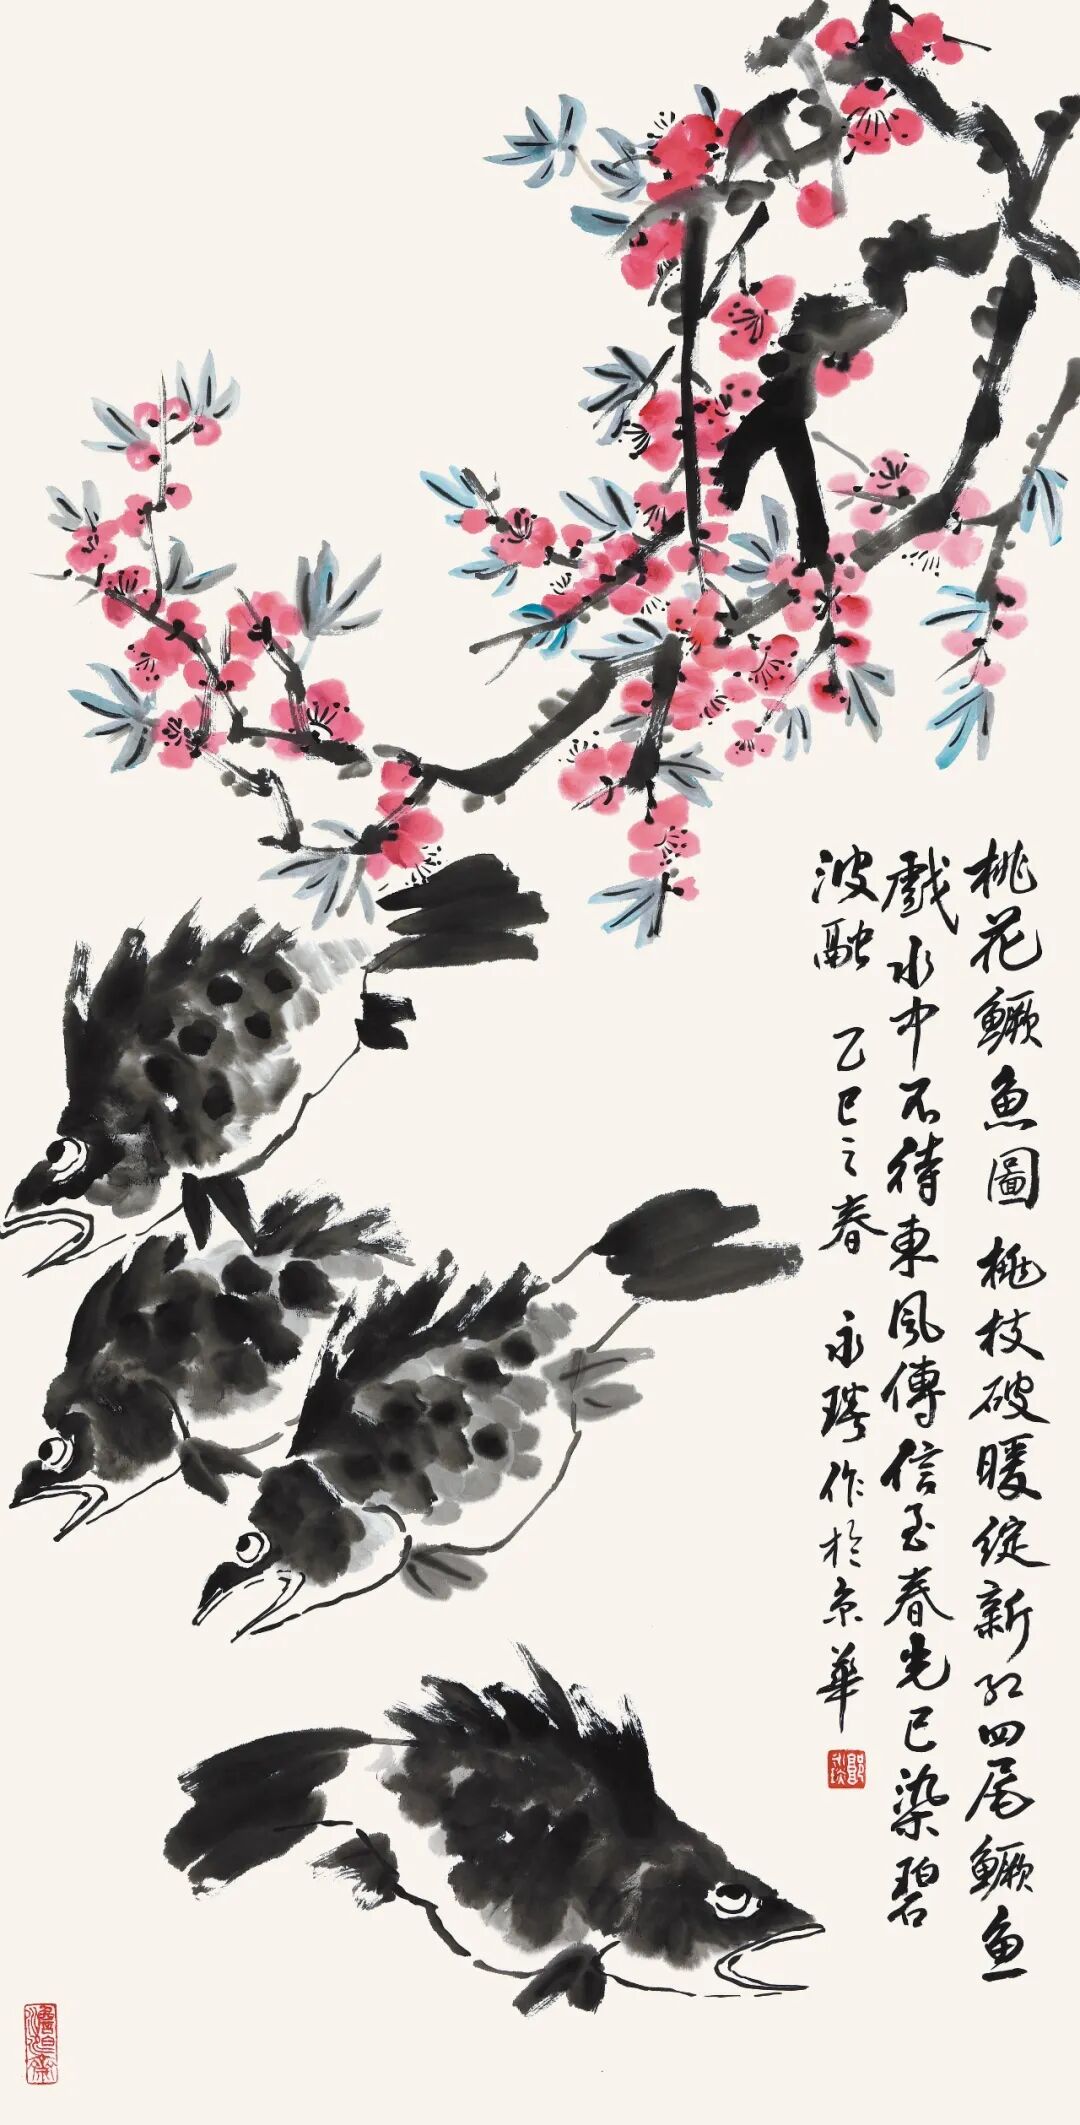 桃花鱖魚圖 桃枝破暖綻新紅四尾鱖魚
戲水中不待東風傳信至春光已染碧
波融 乙巳之春 永作於京華